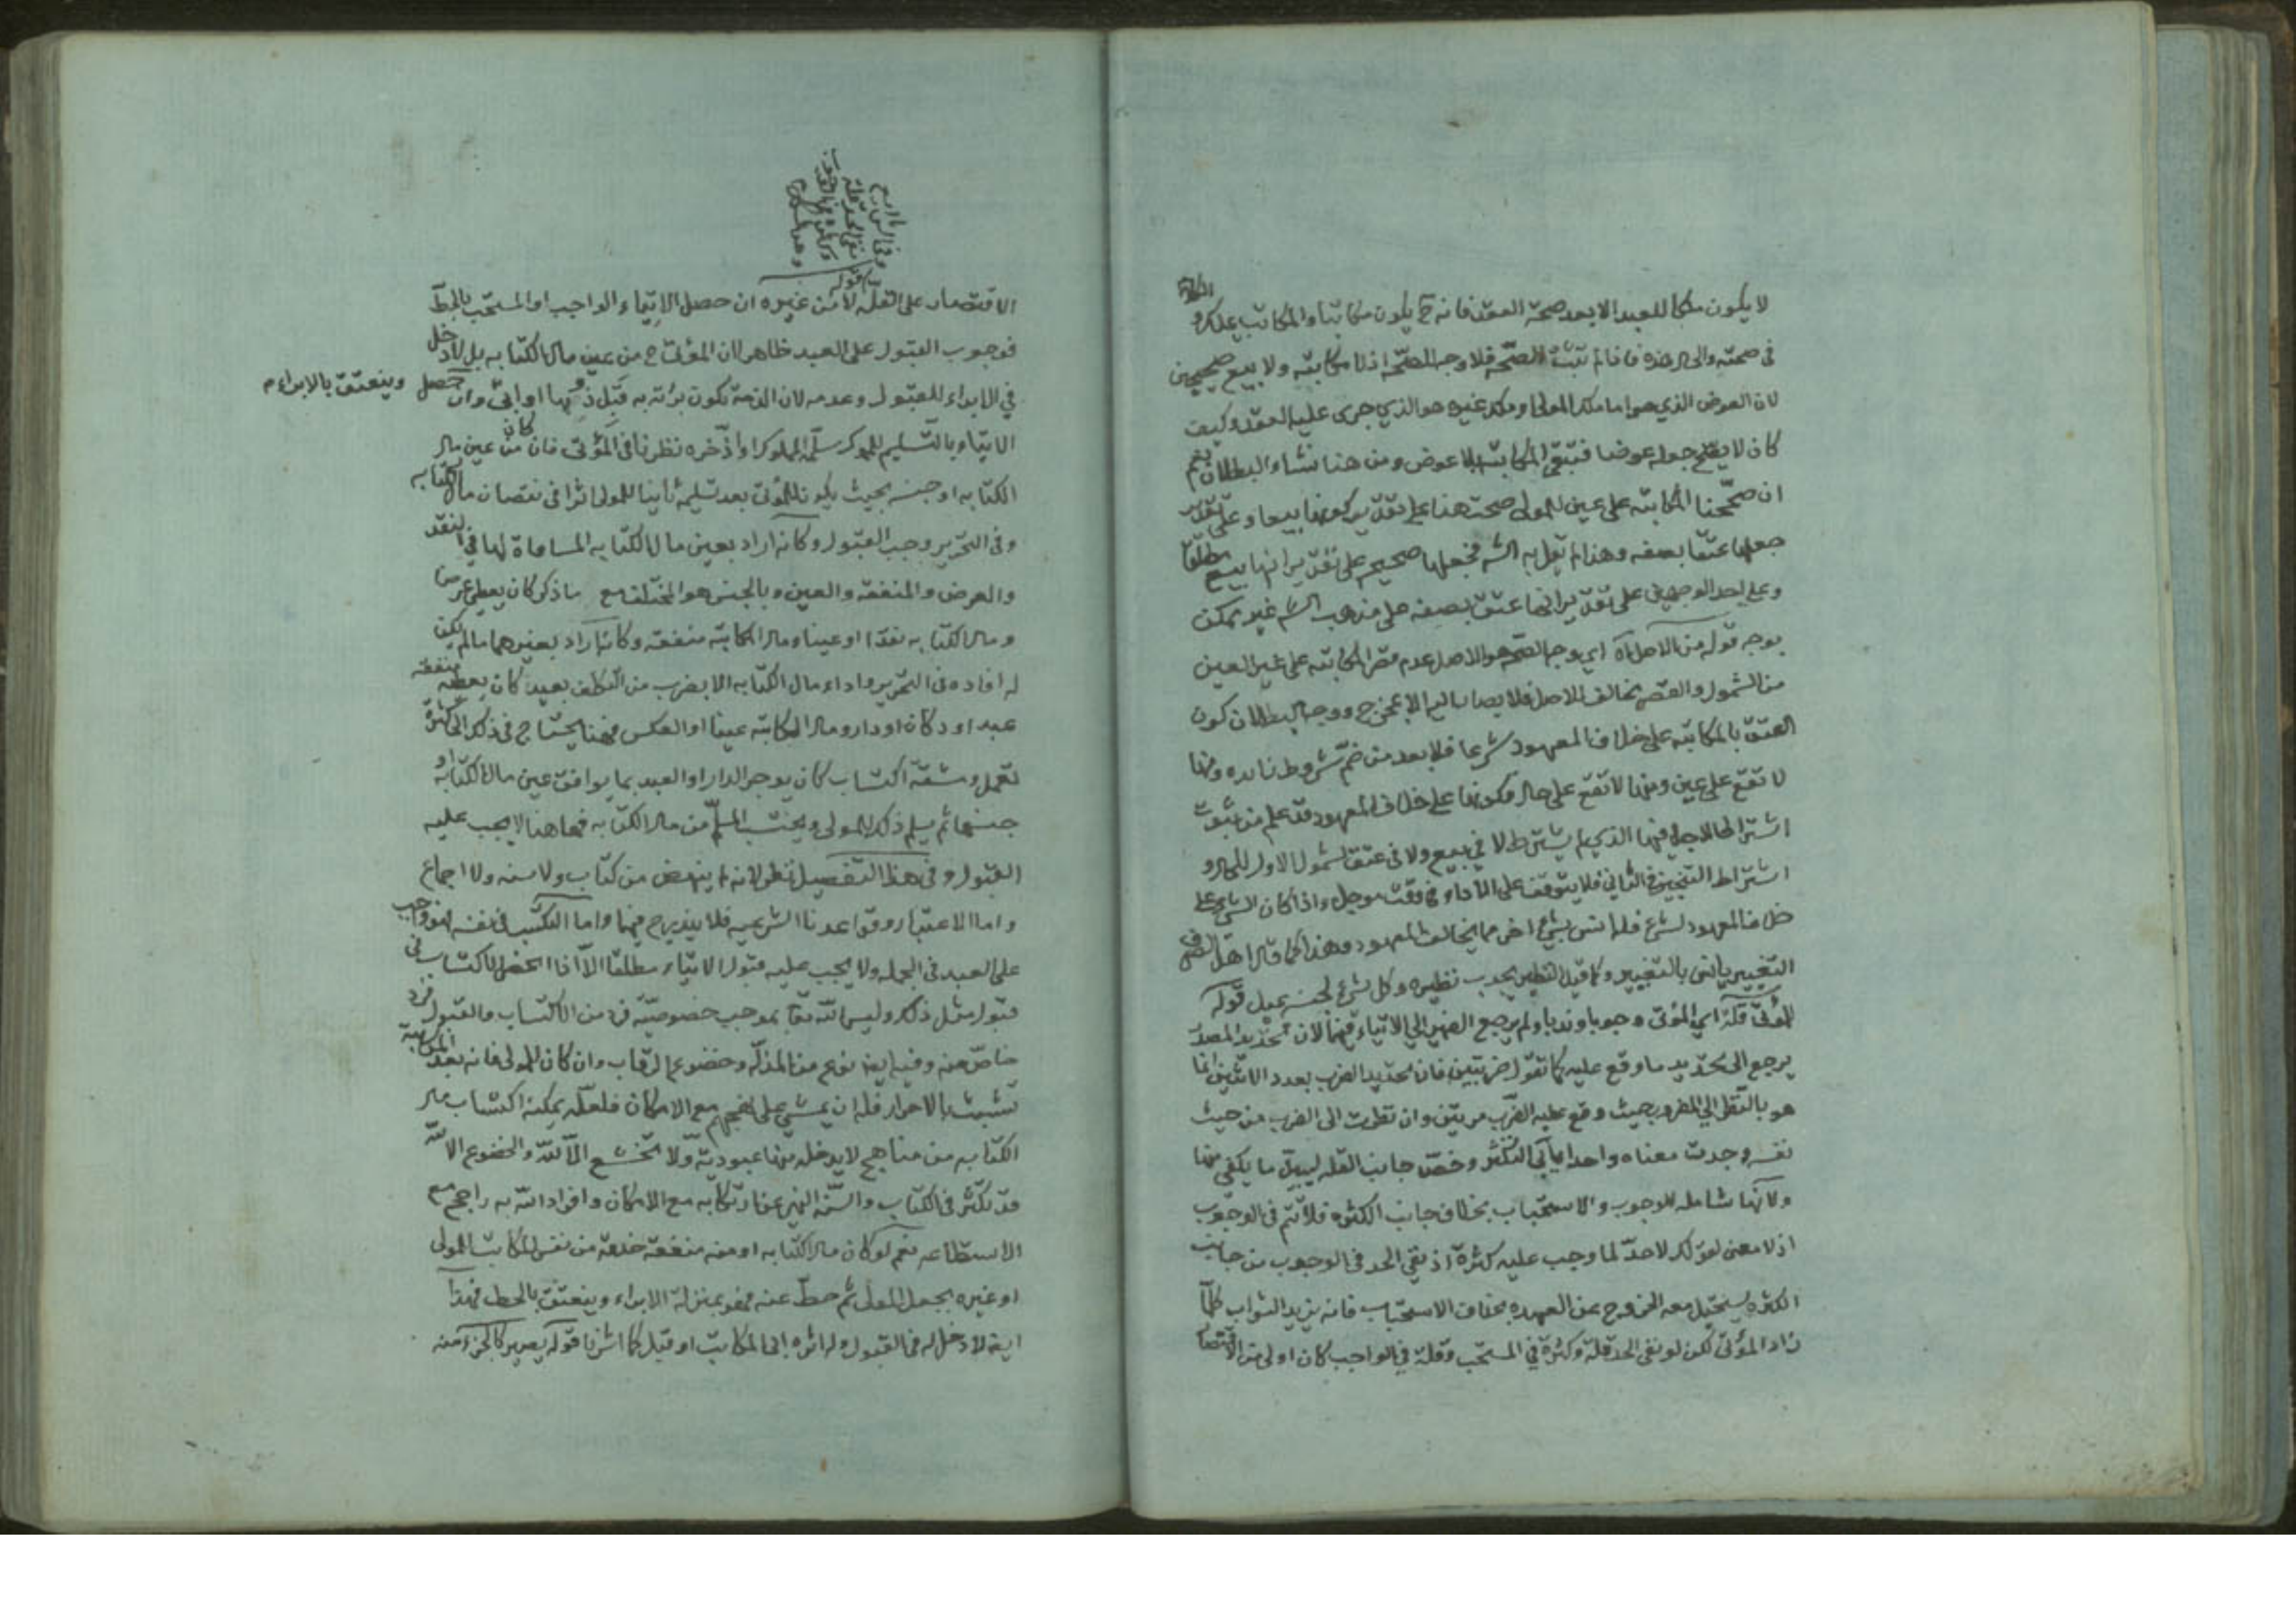 لا يكون ملكا للعبد الا بعد صحة العقد فانه ح يكون مكاتبا والمكاتب يملك و
في صحته والى الان فاذا لم تثبت الصحة فلا وجه للصحة اذ لا مكاتبه ولا بيع صحيحين
لان العوض الذي هو اما ملك المولى او ملك غيره هو الذي جرى عليه العقد وكيف
كان لا يصح جعله عوضا فتبقى المكاتبة بلا عوض ومن هنا نشاء البطلان نعم
ان صححنا المكاتبه على عين للمولى صحت هذا على تقدير كونها بيعا وعلى تقدير
جعلها عتقا بصفه وهذا لم يقل به الش فجعلها صحيحه على تقدير انها بيع مطلقا
وعلى احد الوجهين على تقدير انها عتق بصفه على مذهب الش غير ممكن
بوجه قوله من الاصل اه اي وجه الصحه هو الاصل عدم قصر المكاتبه على غير العين
من الشمول والقصر مخالف للاصل فلا يصار اليه الا بمخرج ووجه البطلان كون
العتق بالمكاتبه على خلاف المعهود شرعا فلا بد من ضم شروط زايده ومنها
لا تقع على عين ومنها لا تقع على حال وكونها على خلاف المعهود قد علم من ثبوت
اشتراط الاجل فيها الذي لم يشترط لا في بيع ولا في عتق لشمول الاول للحال و
اشتراط التنجيز في الثاني فلا يتوقف على الاداء في وقت موجل واذا كان الشي على
خلاف المعهود لشرع فله انس بشي اخر مما يخالف المعهود وهذا كما قال اهل الصرف
التغيير يانس بالتغيير وكما قيل النظير يجذب نظيره وكل شي لجنسه يميل قوله
للمؤتى قلة اي المؤتى وجوبا وندبا ولم يرجع الضمير الى الايتاء فيهما لان تحديد المصدر
يرجع الى تحديد ما وقع عليه كما تقول ضربتين فان تحديد الضرب بعدد الاثنين انما
هو بالنظر الى المضروب حيث وقع عليه الضرب مرتين وان نظرت الى الضرب من حيث
نفسه وجدت معناه واحدا يابى التكثر وخص جانب القله ليبين ما يكفي منها
ولانها شامله للوجوب والاستحباب بخلاف جانب الكثره فلا تتم في الوجوب
اذ لا معنى لقولك لاحد لما وجب عليه كثرة اذ نفي الحد في الوجوب من جانب
الكثره يستحيل معه الخروج عن العهده بخلاف الاستحباب فانه يزيد الثواب كلما
زاد المؤتى لكن لو نفى الحد قلة وكثرة في المستحب وقلة في الواجب كان اولى من الاقتصار
الاقتصار على القلة لا من غيره ان حصل الايتاء الواجب او المستحب بالحط
فوجوب القبول على العبد ظاهر لان المؤتى ح من عين مال الكتابه بل لا دخل
في الابراء للقبول وعدمه لان الذمة تكون برئة به قبل ذو بها او ابى وان حصل وينعتق بالابراء
الايتاء بالتسليم للمملوك سلمه المملوك او اذخره نظرنا في المؤتى فان كان من عين مال
الكتابه او جنسه بحيث يكون للمؤتى بعد تسليمه ثانيا للمولى اثرا في نقصان مال الكتابه
وفي التحرير وجب القبول وكانه اراد بعين مال الكتابه المساواة لها في النقد
والعرض والمنفعه والعين وبالجنس هو المختلف مع ما ذكر كان يعطي عرضا
ومال الكتابه نقدا او عينا ومال المكاتبه منفعه وكانه اراد بغيرهما مالم يكن
له افاده في التحرير واداء مال الكتابه الا بضرب من التكلف بعيد كان يعطيه منفعة
عبد او دكان او دار ومال المكاتبه عينا او العكس فهنا يحتاج في ذلك الى كثرة
تعمل ومشقة اكتساب كان يوجر الدار او العبد بما يوافق عين مال الكتابه او
جنسها ثم يسلم ذلك للمولى ويحتسب المسلم من مال الكتابه فهاهنا لا يجب عليه
القبول وفي هذا التفصيل نظر لانه لم ينهض من كتاب ولا سنه ولا اجماع
واما الاعتبار وقواعدنا الشرعيه فلا يندرج فيها واما التكسب في نفسه فهو واجب
على العبد في الجمله ولا يجب عليه قبول الايتاء مطلقا الا اذا انحصر الاكتساب في
قبول مثل ذلك وليس لله تعا بموجب خصوصية فرد من الاكتساب والقبول فرد
خاص منه وفيه ايضا نوع من المذلة وخضوع الرقاب وان كان للمولى فانه بعد المكاتبة
تشبث بالاحرار فله ان يمشي على نهجهم مع الامكان فلعله يمكنه اكتساب مال
الكتابه من مناهج لا يدخله منها عبودية ولا تخشع الا لله والخضوع الا لله
قد تكثر في الكتاب والسنه النهي عن ارتكابه مع الامكان وافراد الله به راجح مع
الاستطاعه نعم لو كان مال الكتابه او منه منفعة خدمة من نفس المكاتب للمولى
او غيره بجعل المولى ثم حط عنه فهو بمنزلة الابراء وينعتق بالحط فهذا
ايضا لا دخل له في القبول وله اثره ابى المكاتب او قبل كما اشرنا قوله يصير كالجزء منه